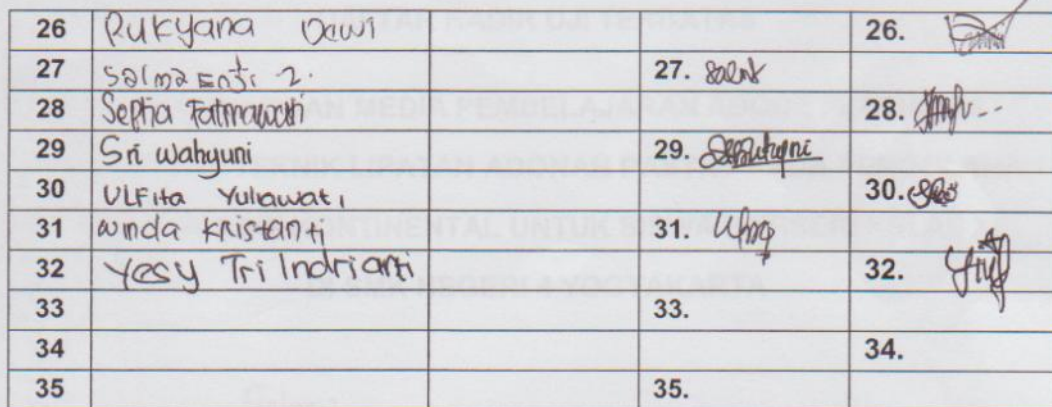 26 Rukyana Dewi 26.
27 Salma Enti 2. 27.
28 Septia Fatmawati 28.
29 Sri wahyuni 29.
30 ULFita Yuliawati 30.
31 winda kristanti 31.
32 Yesy Tri Indrianti 32.
33 33.
34 34.
35 35.